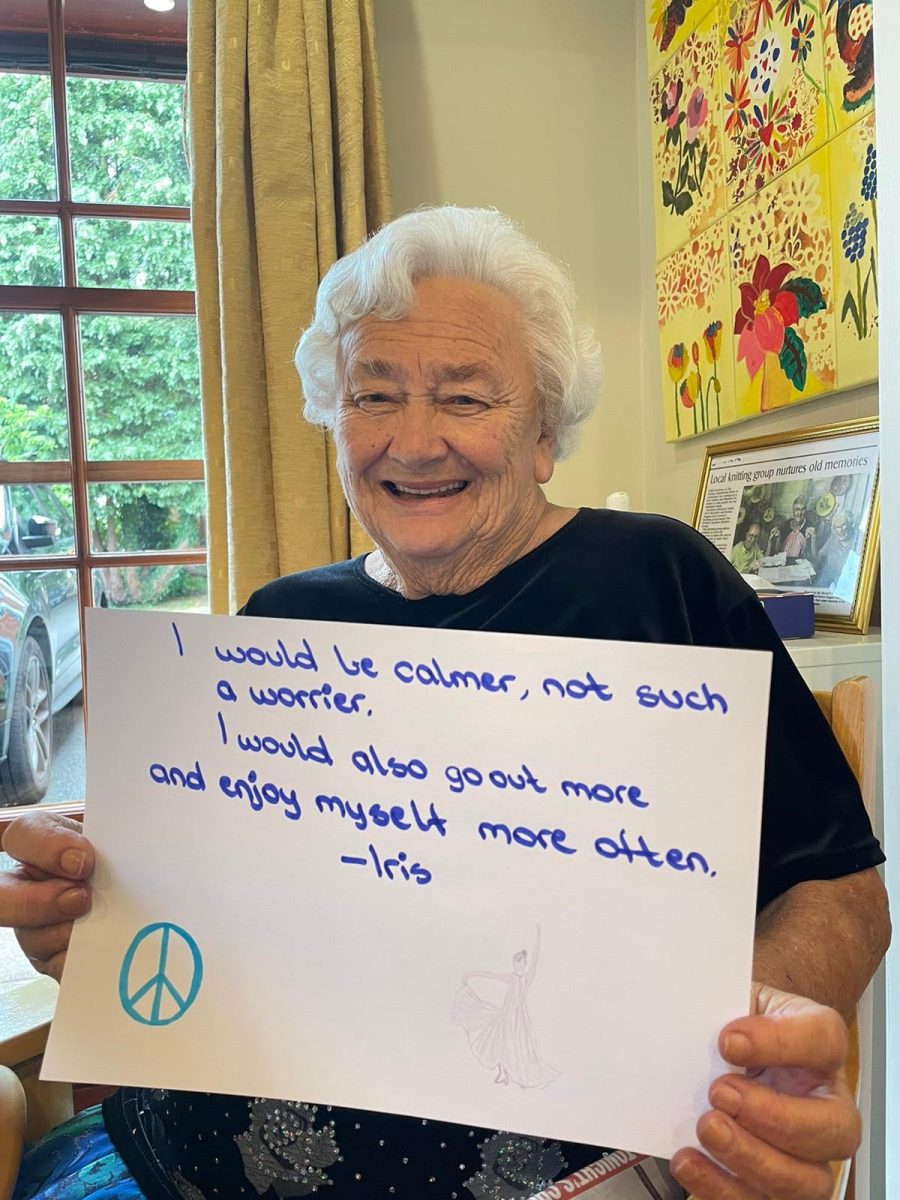 Local knitting group nurtures old memories
I would be calmer, not such
a worrier.
I would also go out more
and enjoy myself more often.
–Iris